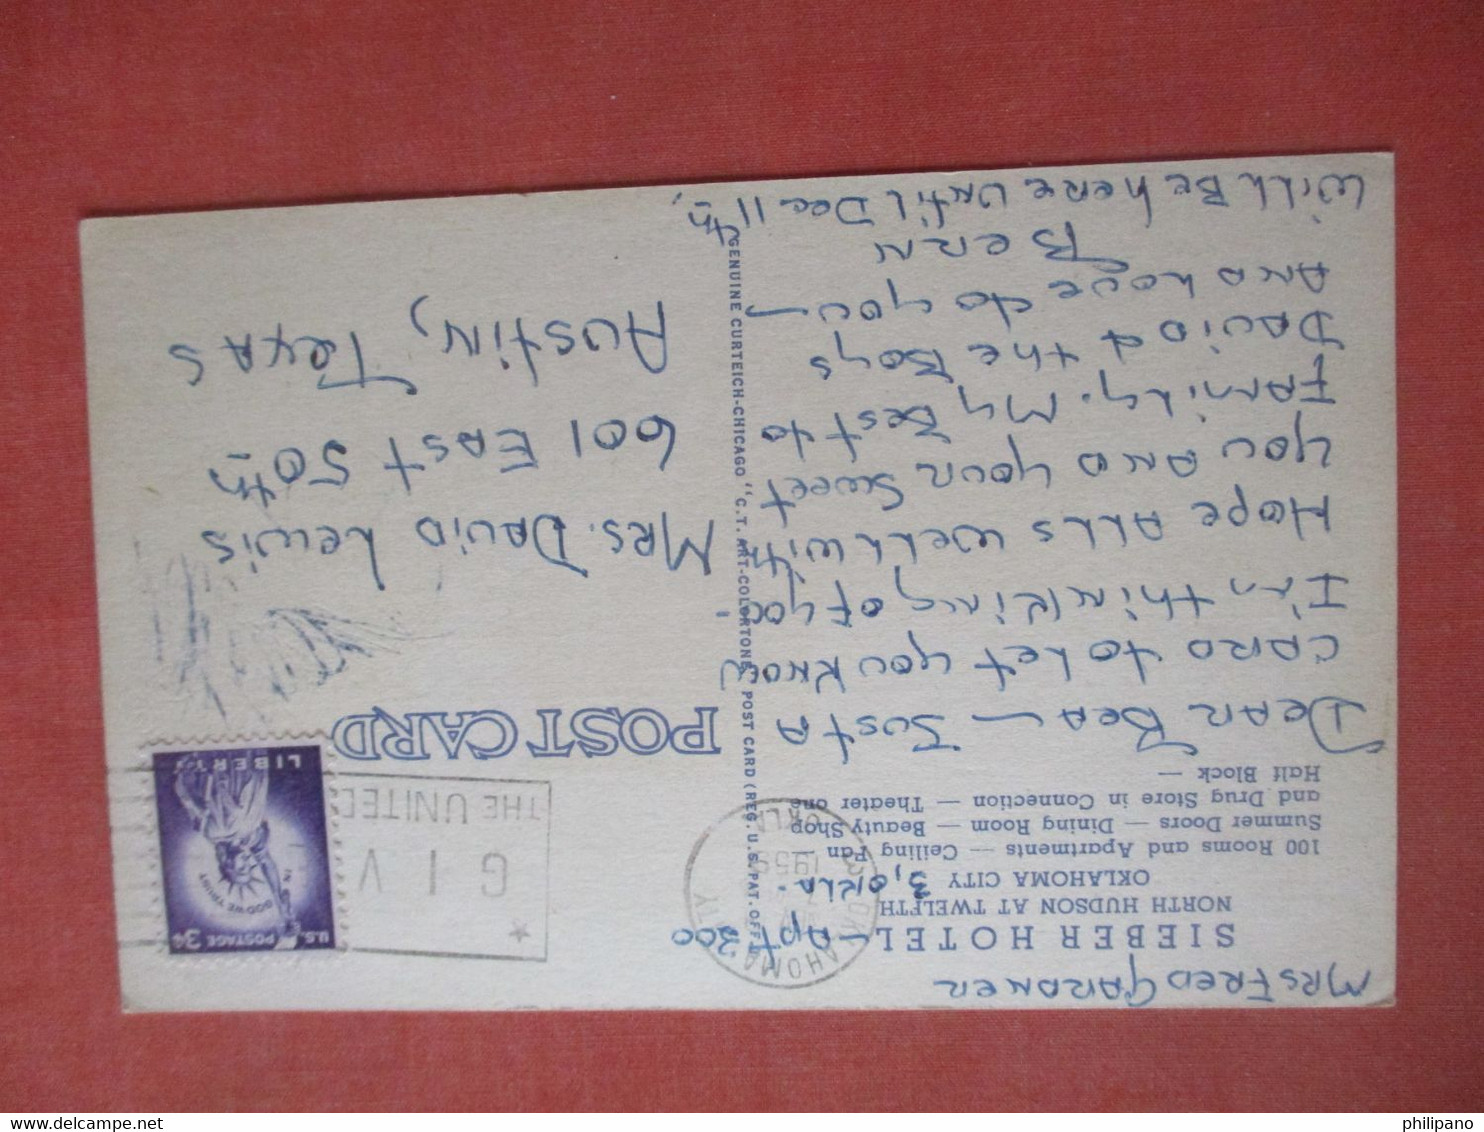 MRS FRED GARDNER
SIEBER HOTEL - Apt 300
NORTH HUDSON AT TWELFTH
OKLAHOMA CITY 3, OKLA.
100 Rooms and Apartments — Ceiling Fan —
Summer Doors — Dining Room — Beauty Shop
and Drug Store in Connection — Theater one
Half Block —
DEAR BEA — JUST A
CARD to LET you KNOW
I'm thinking of you.
HOPE ALLS WELL with
you AND your sweet
FAMILY. My BEST to
DAVID & the Boys
AND Love to you —
BERN
Will BE here until Dec 11th.
GENUINE CURTEICH-CHICAGO "C.T. ART-COLORTONE" POST CARD (REG. U.S. PAT. OFF.)
OKLAHOMA CITY
1959
OKLA
★
GIV
THE UNITED
U.S. POSTAGE 3¢
IN GOD WE TRUST
LIBERTY
POST CARD
MRS. DAVID LEWIS
601 EAST 50th
AUSTIN, TEXAS
philipano